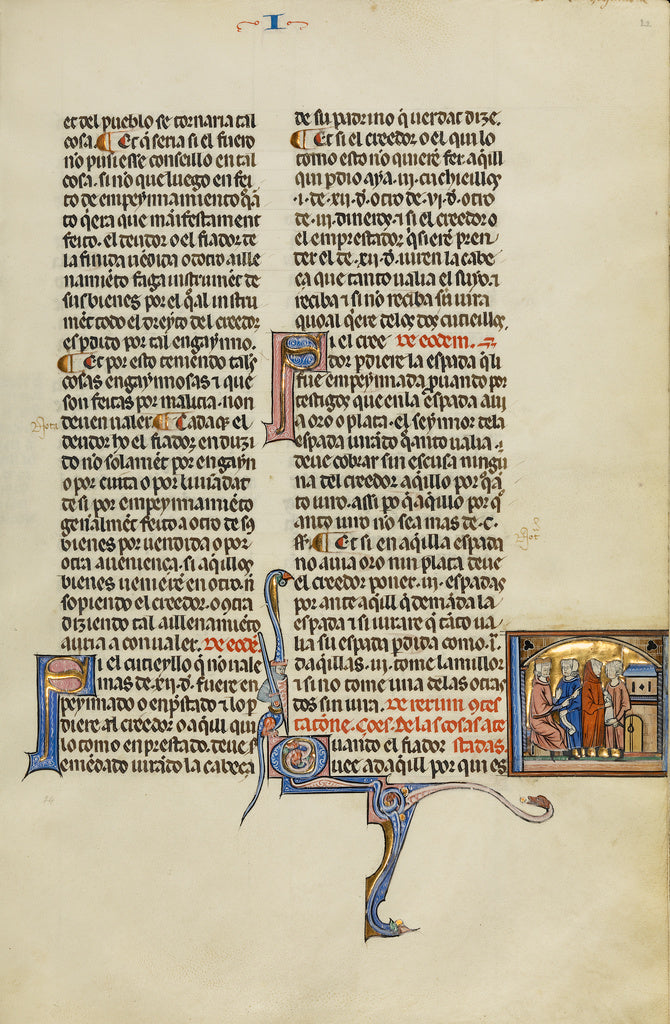 I
et del pueblo se tornaria tal
cosa. Et q̄ seria si el fuero
no pusiesse conseillo en tal
cosa. si no que luego en fei
to de empeynnamiento q̄n
to q̄era que manifestament
feito. el deudor o el fiador de
la finida uēdida o dotro aille
namiēto faga instrumēt de
sus bienes por el q̄al instru
mēt todo el dreyto del creedor
es pdito por tal engaynno.
Et por esto teniendo tales
cosas engaynnosas ⁊ que
son feitas por malicia. non
deuen ualer. Cada q̄ el
Nota
deudor ho el fiador enduzi
do no solamēt por engayn
o por cuita o por liuiādat
de si por empeynnamiēto
gen̄almēt feito a otro de sꝯ
bienes por uendida o por
otra aueniença. si aq̄llos
bienes uenierē en otro. nō
sopiendo el creedor. o otra
diziendo tal aillenamiēto
auria a con ualer. De eodē.
Si el cutieyllo q̄ no uale
mas de .xii. d̄. fuere en
peynnado o enp̄stado ⁊ lo p
diere al creedor o aq̄ll qui
lo tomo en prestado. deue s̄
emēdado iurādo la cabeça
de su padrino q̄ uerdat dize.
Et si el creedor o el qui lo
tomo esto no quiere fer. aq̄ll
qui pdio aya .iii. cuchieillos
.i. de .xii. d̄. otro de .vi. d̄. otro
de .iii. dineros. ⁊ si el creedor o
el emprestador q̄siere pren
der el de .xii. d̄. iuren la cabe
ça que tanto ualia el suyo. ⁊
reciba ⁊ si nō reciba sin iura
quoal q̄ere delos dos cutieillos.
Si el cree De eodem.
dor pdiere la espada q̄li
fue empeynnada puando por
testigos que en la espada aui
a oro o plata. el seynnor dela
espada iurādo q̄anto ualia. ⁊
deue cobrar sin escusa ningu
na del creedor aq̄llo por q̄n
to iuro. assi po q̄ aq̄llo por q̄
anto iuro no sea mas de .C.
ss̄. Et si en aq̄lla espada
Not
no auia oro nin plata deue
el creedor poner .iii. espadas
por ante aq̄ll q̄ demāda la
espada ⁊ si iurare q̄ tāto ua
lia su espada pdida como .i.
daq̄llas .iii. tome la millor
⁊ si no tome una delas otras
dos sin iura. De rerum 9tes
tatōne. Coes. De las cosas ate
Quando el fiador stadas.
diere ad aq̄ll por qui es